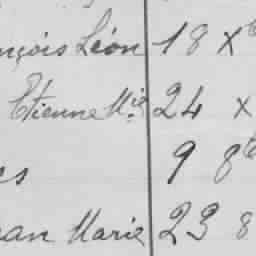 nçois Léon 18 Xb
Etienne Mie 24 X
es 9 8b
ean Marie 23 8